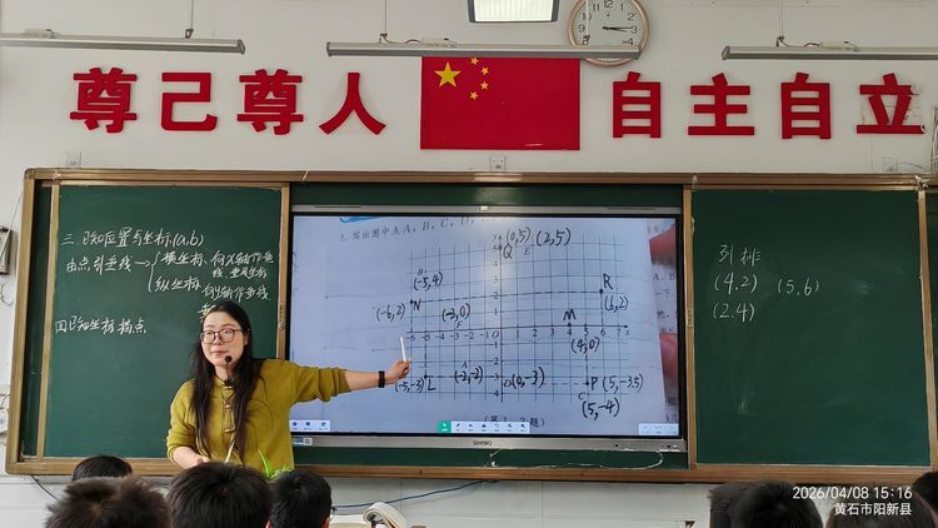 尊己尊人
自主自立
三.已知位置写坐标(a,b)
由点引垂线→
横坐标、向X轴作垂
线,垂足坐标
纵坐标、向Y轴作垂线
四已知坐标描点
1. 写出图中点A, B, C, D,
(0,5) (2,5)
Q E
B
(-5,4)
R
(-6,2) N (-3,0) (6,2)
F M
-6 -5 -4 -3 -2 -1 0 1 2 3 4 5 6 x
(4,0)
A
(-5,-3) L (-2,-2) D (0,-3) P (5,-3.5)
C
(5,-4)
(第1、2题)
seewo
列 排
(4.2) (5,6)
(2.4)
2026/04/08 15:16
黄石市阳新县